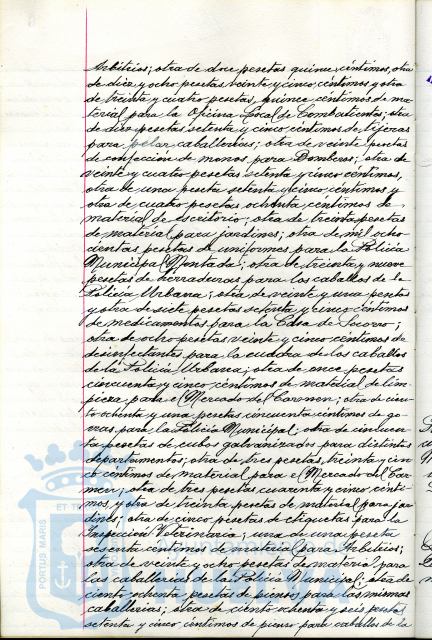 Arbitrios; otra de doce pesetas quince céntimos, otra
de diez y ocho pesetas veinte y cinco céntimos y otra
de treinta y cuatro pesetas, quince céntimos de ma-
terial para la Oficina Local de Combatientes; otra
de diez pesetas setenta y cinco céntimos de tijeras
para pelar caballerias; otra de veinte pesetas
de confección de monos para Bomberos; otra de
veinte y cuatro pesetas setenta y cinco céntimos,
otra de una peseta setenta y cinco céntimos y
otra de cuatro pesetas ochenta céntimos de
material de escritorio; otra de treinta pesetas
de material para jardines; otra de mil ocho-
cientas pesetas de uniformes para la Policia
Municipal Montada; otra de treinta y nueve
pesetas de herraduras para los caballos de la
Policia Urbana; otra de veinte y una pesetas
y otra de siete pesetas setenta y cinco céntimos
de medicamentos para la Casa de Socorro;
otra de ocho pesetas veinte y cinco céntimos de
desinfectantes para la cuadra de los caballos
de la Policia Urbana; otra de once pesetas
cincuenta y cinco céntimos de material de lim-
pieza para el Mercado del Carmen; otra de cien-
to ochenta y una pesetas cincuenta céntimos de go-
rras para la Policia Municipal; otra de cincuen-
ta pesetas de cubos galvanizados para distintos
departamentos; otra de tres pesetas, treinta y cin-
co céntimos de material para el Mercado del Car-
men; otra de tres pesetas cuarenta y cinco cénti-
mos, y otra de treinta pesetas de material para jar-
dines; otra de cinco pesetas de etiquetas para la
Inspección Veterinaria; una de una peseta
sesenta céntimos de material para Arbitrios;
otra de veinte y ocho pesetas de material para
las caballerias de la Policia Municipal; otra de
ciento ochenta pesetas de piensos para las mismas
caballerias; otra de ciento ochenta y seis pesetas
setenta y cinco céntimos de pienso para caballos de la
ET T
PORTUS MARIS